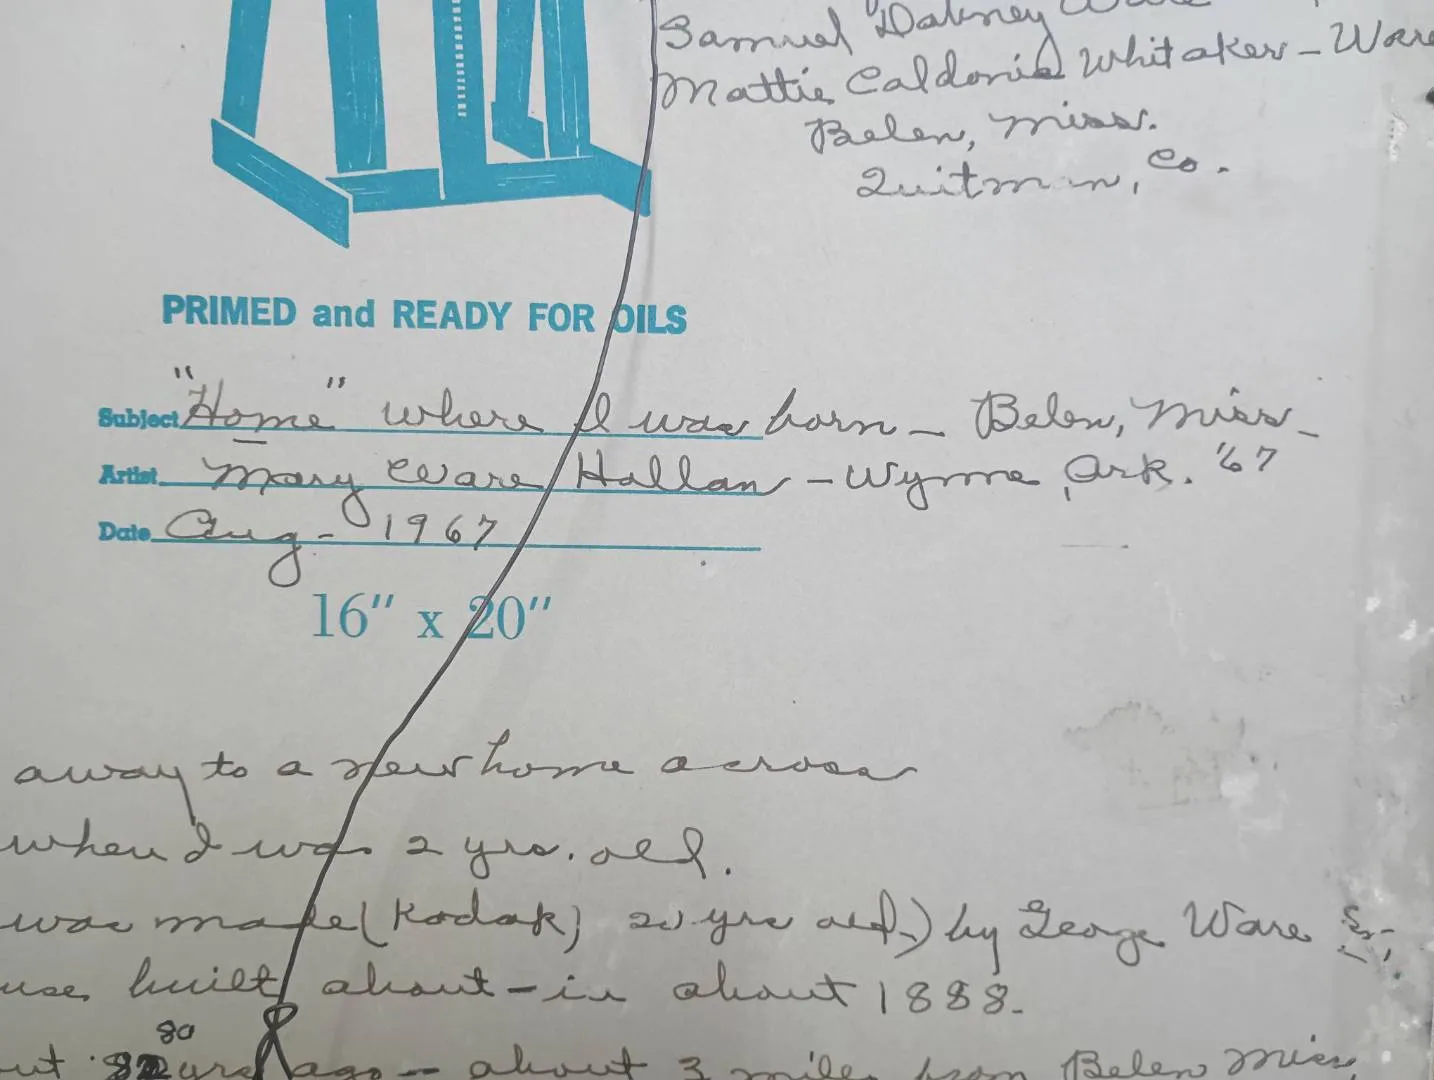 Samuel Dabney Ware
Mattie Caldonia Whitaker – Ware
Belen, Miss.
Quitman, Co.
PRIMED and READY FOR OILS
Subject "Home" where I was born – Belen, Miss –
Artist Mary Ware Hallan – Wynne, Ark. '67
Date Aug – 1967
16" x 20"
away to a new home across
when I was 2 yrs. old.
was made (Kodak) 20 yrs old.) by George Ware Sr.,
use built about – in about 1888 –
80
ut yrs ago – about 3 miles from Belen Miss,